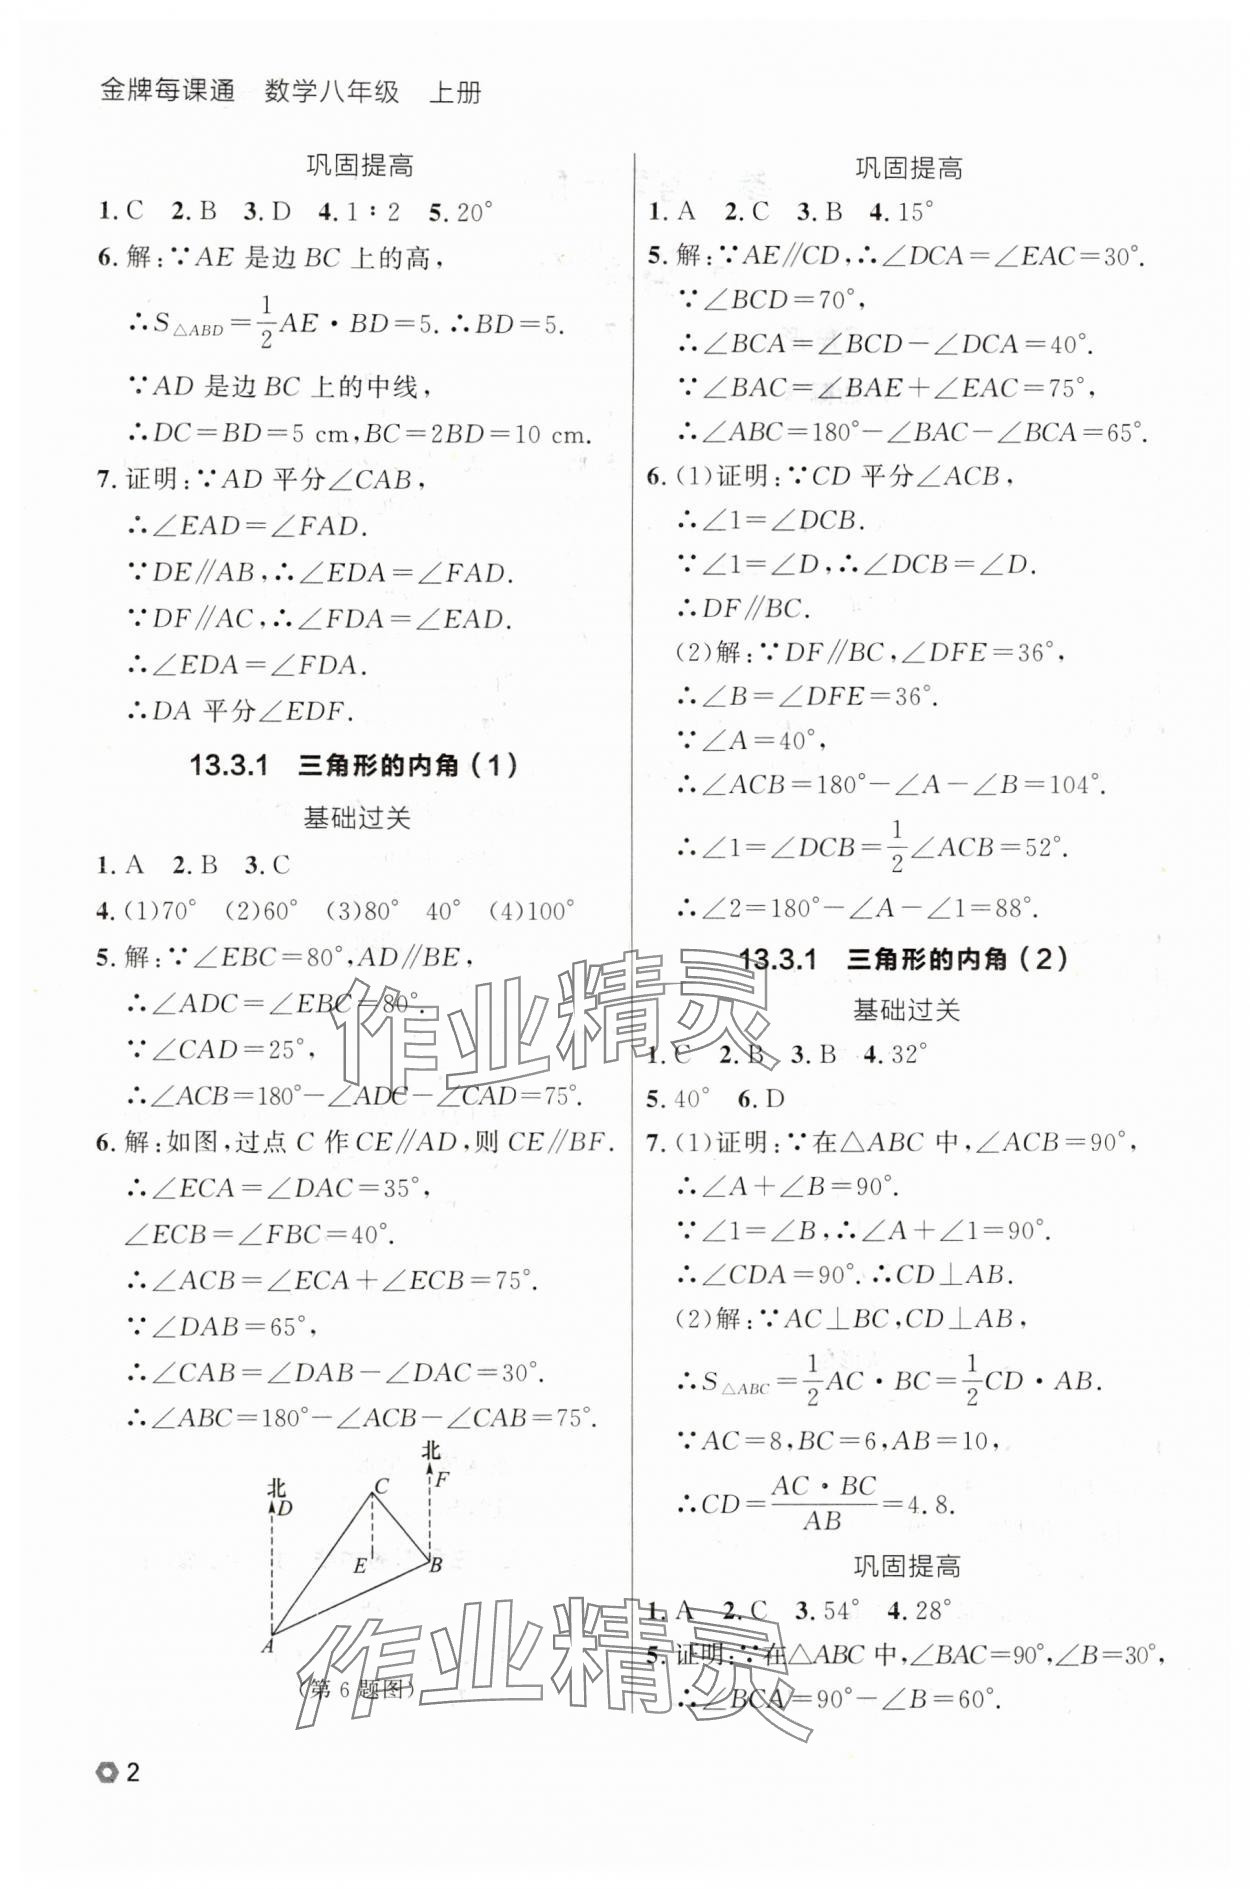 金牌每课通 数学八年级 上册
巩固提高
1. C 2. B 3. D 4. 1∶2 5. 20°
6. 解:∵AE 是边 BC 上的高,
∴S△ABD=1/2 AE·BD=5. ∴BD=5.
∵AD 是边 BC 上的中线,
∴DC=BD=5 cm,BC=2BD=10 cm.
7. 证明:∵AD 平分∠CAB,
∴∠EAD=∠FAD.
∵DE∥AB,∴∠EDA=∠FAD.
∵DF∥AC,∴∠FDA=∠EAD.
∴∠EDA=∠FDA.
∴DA 平分∠EDF.
13.3.1 三角形的内角(1)
基础过关
1. A 2. B 3. C
4. (1)70° (2)60° (3)80° 40° (4)100°
5. 解:∵∠EBC=80°,AD∥BE,
∴∠ADC=∠EBC=80°.
∵∠CAD=25°,
∴∠ACB=180°−∠ADC−∠CAD=75°.
6. 解:如图,过点 C 作 CE∥AD,则 CE∥BF.
∴∠ECA=∠DAC=35°,
∠ECB=∠FBC=40°.
∴∠ACB=∠ECA+∠ECB=75°.
∵∠DAB=65°,
∴∠CAB=∠DAB−∠DAC=30°.
∴∠ABC=180°−∠ACB−∠CAB=75°.
北
北
D
C
F
E
B
A
(第 6 题图)
巩固提高
1. A 2. C 3. B 4. 15°
5. 解:∵AE∥CD,∴∠DCA=∠EAC=30°.
∵∠BCD=70°,
∴∠BCA=∠BCD−∠DCA=40°.
∵∠BAC=∠BAE+∠EAC=75°,
∴∠ABC=180°−∠BAC−∠BCA=65°.
6. (1)证明:∵CD 平分∠ACB,
∴∠1=∠DCB.
∵∠1=∠D,∴∠DCB=∠D.
∴DF∥BC.
(2)解:∵DF∥BC,∠DFE=36°,
∴∠B=∠DFE=36°.
∵∠A=40°,
∴∠ACB=180°−∠A−∠B=104°.
∴∠1=∠DCB=1/2∠ACB=52°.
∴∠2=180°−∠A−∠1=88°.
13.3.1 三角形的内角(2)
基础过关
1. C 2. B 3. B 4. 32°
5. 40° 6. D
7. (1)证明:∵在△ABC 中,∠ACB=90°,
∴∠A+∠B=90°.
∵∠1=∠B,∴∠A+∠1=90°.
∴∠CDA=90°. ∴CD⊥AB.
(2)解:∵AC⊥BC,CD⊥AB,
∴S△ABC=1/2 AC·BC=1/2 CD·AB.
∵AC=8,BC=6,AB=10,
∴CD=AC·BC/AB=4.8.
巩固提高
1. A 2. C 3. 54° 4. 28°
5. 证明:∵在△ABC 中,∠BAC=90°,∠B=30°,
∴∠BCA=90°−∠B=60°.
作业精灵
作业精灵
2